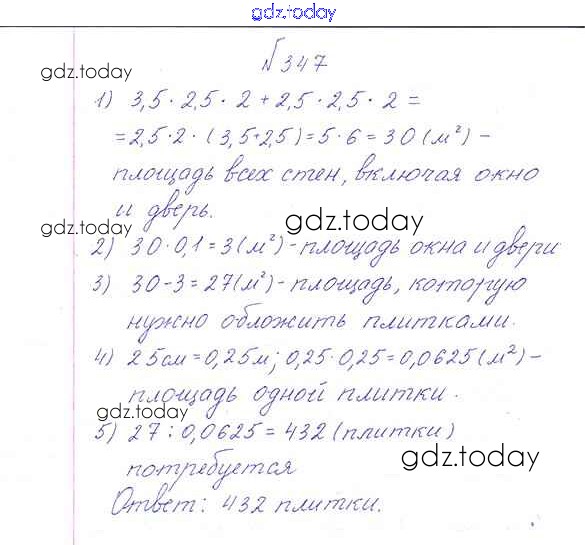 gdz.today
№347
gdz.today
1) 3,5 · 2,5 · 2 + 2,5 · 2,5 · 2 =
= 2,5 · 2 · (3,5+2,5) = 5 · 6 = 30 (м²) –
площадь всех стен, включая окно
и дверь.
gdz.today
gdz.today
2) 30 · 0,1 = 3 (м²) – площадь окна и двери
3) 30 – 3 = 27 (м²) – площадь, которую
нужно обложить плитками.
4) 25 см = 0,25 м; 0,25 · 0,25 = 0,0625 (м²) –
gdz.today
площадь одной плитки.
gdz.today
5) 27 : 0,0625 = 432 (плитки)
gdz.today
потребуется
Ответ: 432 плитки.